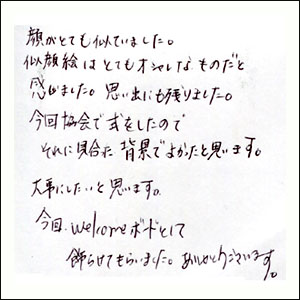 顔がとても似ていました。
似顔絵はとてもオシャレなものだと
感じました。思い出にも残りました。
今回協会で式をしたので
それに見合た背景でよかったと思います。
大事にしたいと思います。
今回、welcomeボードとして
飾らせてもらいました。ありがとうございます。